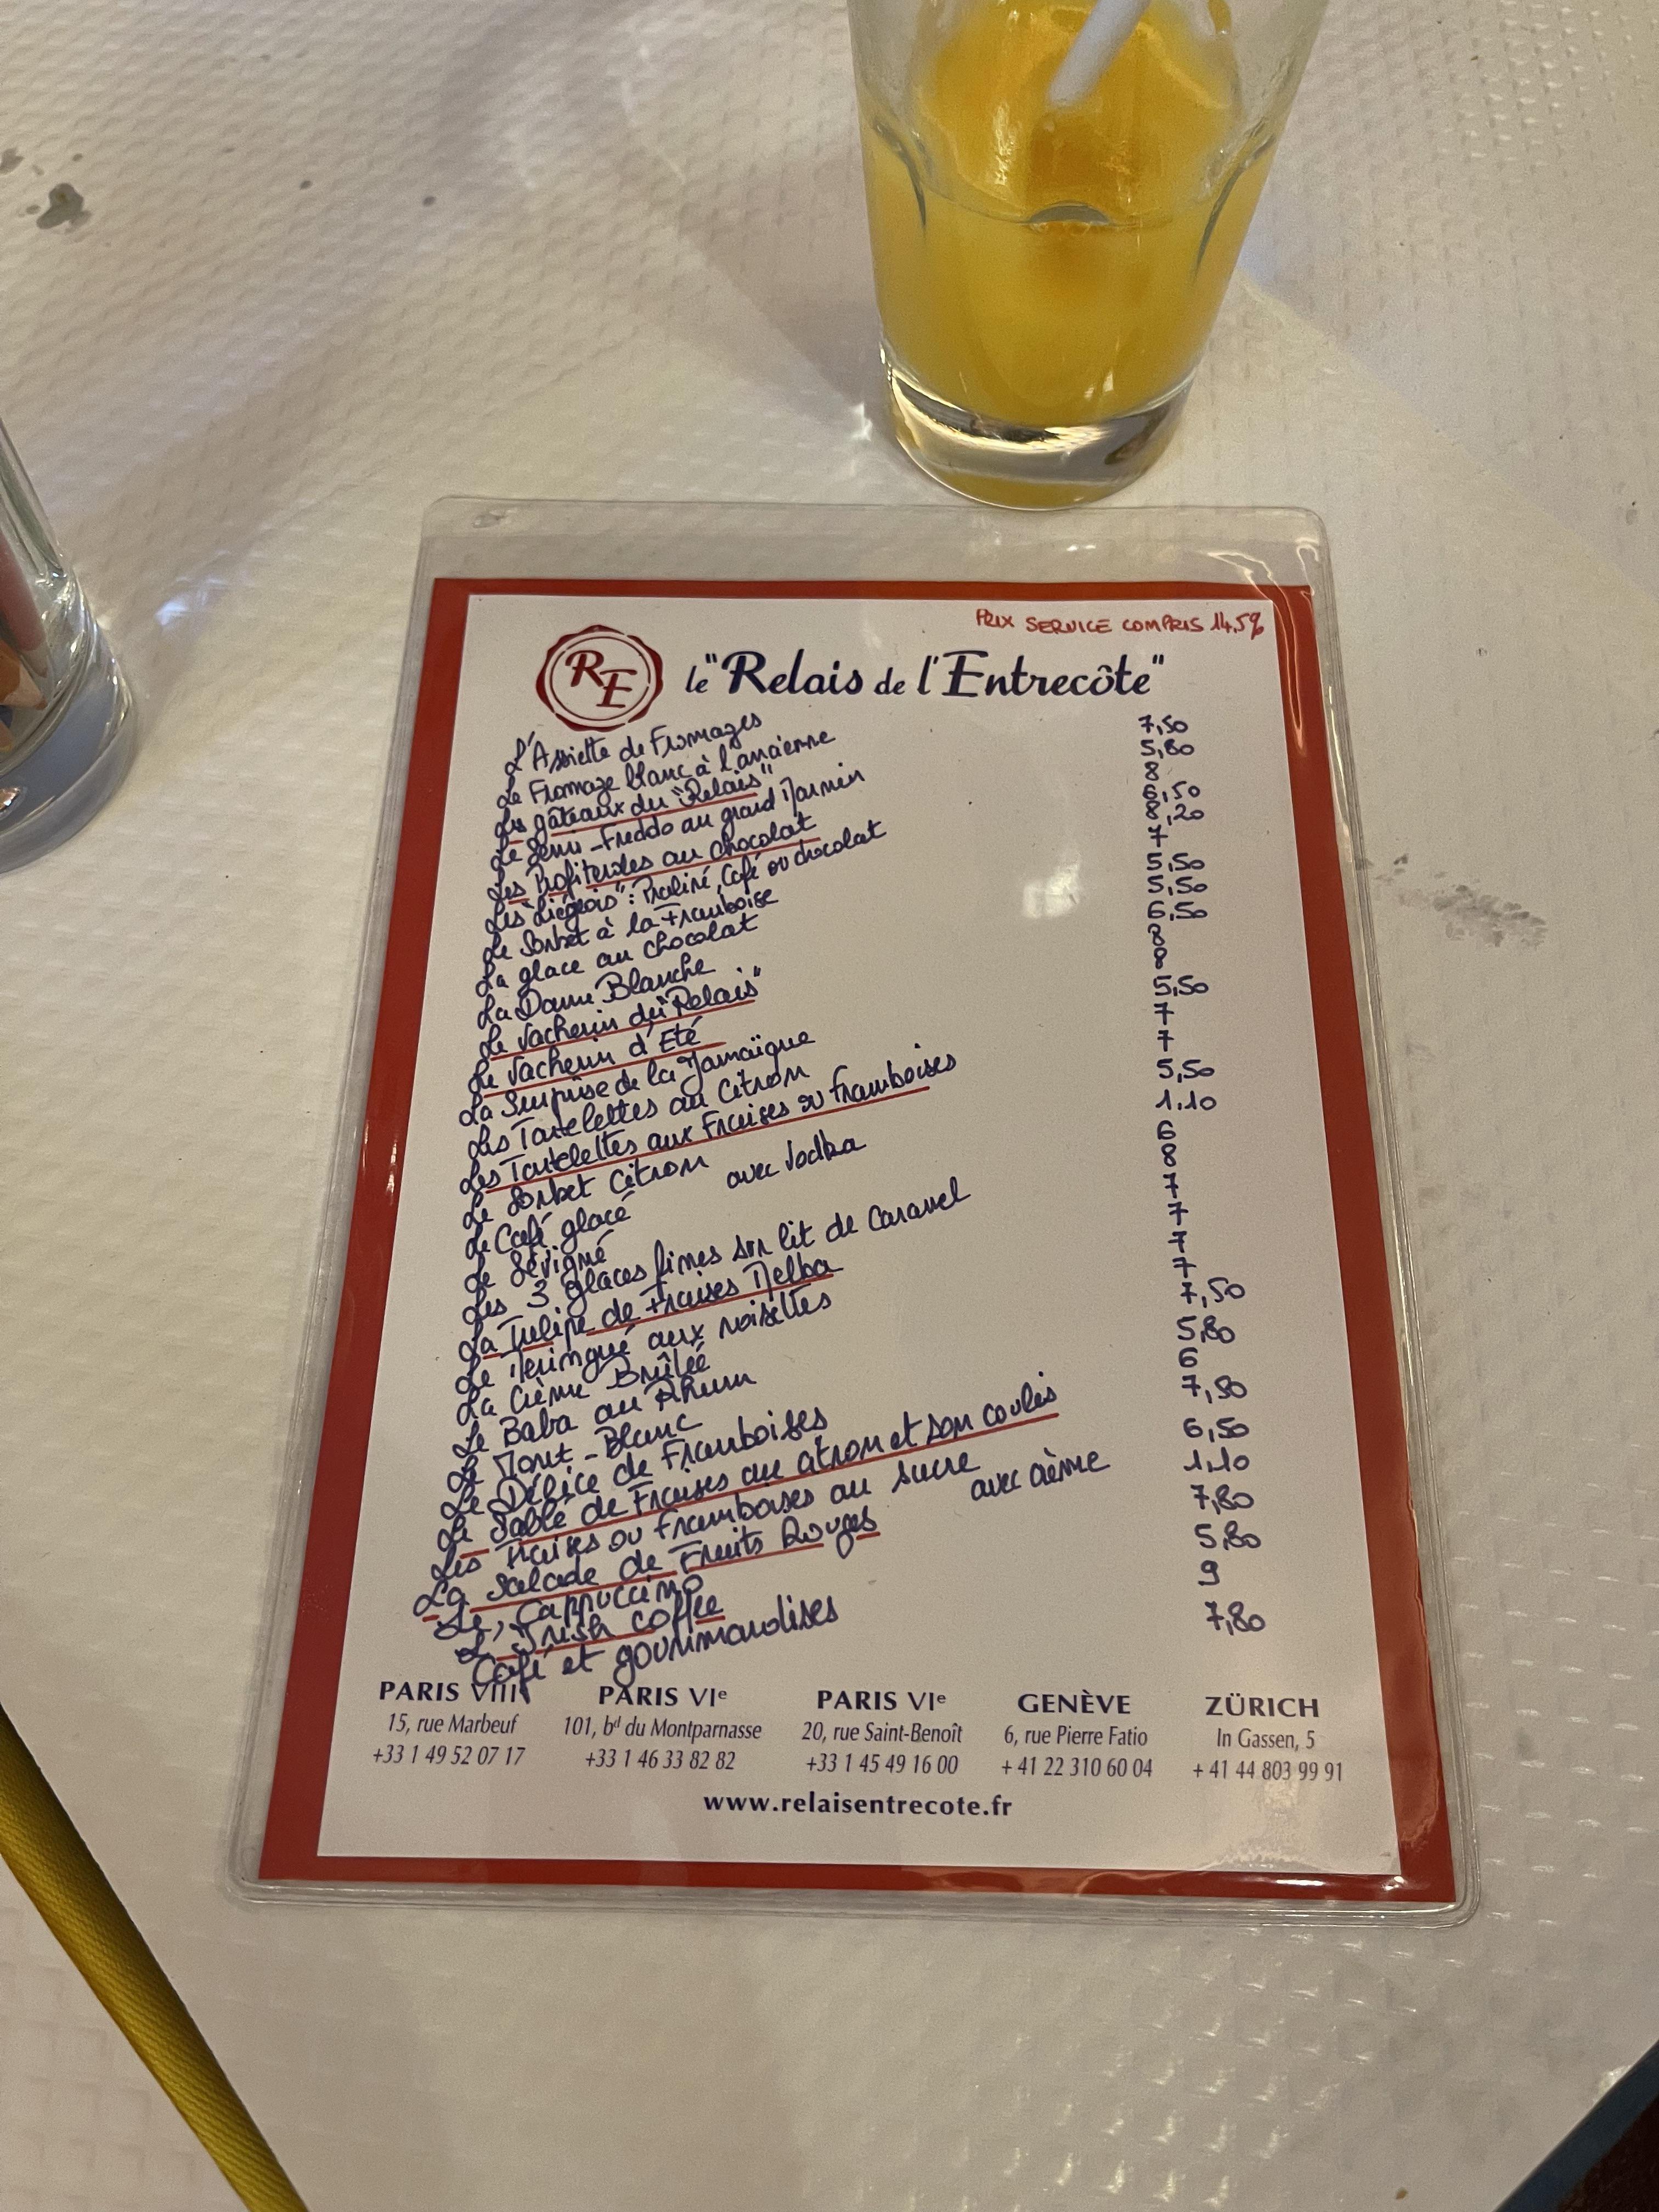 PRIX SERVICE COMPRIS 14,5%
RE
le "Relais de l'Entrecôte"
L'Assiette de Fromages 7,50
Le Fromage blanc à l'ancienne 5,80
Les gâteaux du "Relais" 8
Le Semi-Freddo au grand Marnier 6,50
Les Profiteroles au chocolat 8,20
Les "Liégeois": Praliné, Café ou chocolat 7
Le Sorbet à la Framboise 5,50
La glace au chocolat 5,50
La Dame Blanche 6,50
Le Vacherin du "Relais" 8
Le Vacherin d'Eté 8
La Surprise de la Jamaïque 5,50
Les Tartelettes au Citron 7
Les Tartelettes aux Fraises ou Framboises 7
Le Sorbet Citron 5,50
avec Vodka 1.10
Le Café glacé 6
Le Sévigné 8
Les 3 glaces fines sur lit de Caramel 7
La Tulipe de Fraises Melba 7
Le Meringué aux noisettes 7
La Crème Brûlée 7
Le Baba au Rhum 7,50
Le Mont-Blanc 5,80
Le Délice de Framboises 6
Le Sablé de Fraises au citron et son coulis 7,50
Les Fraises ou Framboises au sucre 6,50
avec crème 1.10
La Salade de Fruits Rouges 7,80
Le Cappuccino 5,80
L'Irish Coffee 9
Café et gourmandises 7,80
PARIS VIII
15, rue Marbeuf
+33 1 49 52 07 17
PARIS VIe
101, bd du Montparnasse
+33 1 46 33 82 82
PARIS VIe
20, rue Saint-Benoît
+33 1 45 49 16 00
GENÈVE
6, rue Pierre Fatio
+ 41 22 310 60 04
ZÜRICH
In Gassen, 5
+ 41 44 803 99 91
www.relaisentrecote.fr